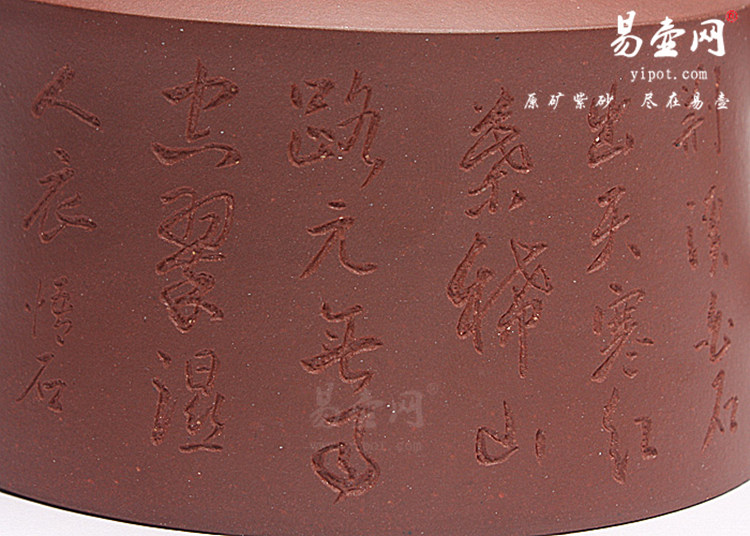 易壶网
yipot.com
原矿紫砂 尽在易壶
荆溪白石
出天寒红
葉稀山
路元無雨
空翠湿
人衣 悟石
易壶网
www.yipot.com